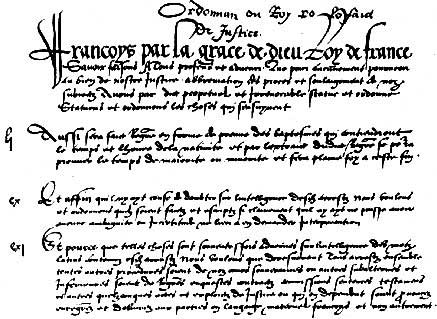 Francoys par la grace de dieu Roy de france
Scavoir faisons a tous presens et advenir que pour aucunement pourveoir
au bien de nostre Justice abbreviation des proces et soulaigement de noz
subgectz avons par edit perpetuel et irrevocable statue et ordonne
Statuons et ordonnons les choses qui sensuyvent
li Aussi sera faict en forme de preuve des baptesmes qui contiendront
le temps et lheure de la nativite et par lextraict dudict se
prouver le temps de maiorite ou minorite et fera plaine foy a ceste fin
cx Et affin quil ny ayt cause de doubter sur lintelligence desdictz arrestz Nous voulons
et ordonnons quilz soient faictz et escriptz si clerement quil ny ayt ne puisse avoir
aucune ambiguite ou incertitude ne lieu a en demander interpretation
cxi Et pource que telles choses sont souventesfois advenues sur lintelligence des motz
latins contenuz esdictz arrestz Nous voulons que doresnavant tous arrestz ensemble
toutes autres procedures soient de noz cours souveraines ou autres subalternes et
inferieures soient de registres enquestes contractz commissions sentences testamens
ou autres quelzconques actes et exploictz de Justice ou qui en dependent soient prononcez
enregistrez et delivrez aux parties en langaige maternel francoys et non autrement